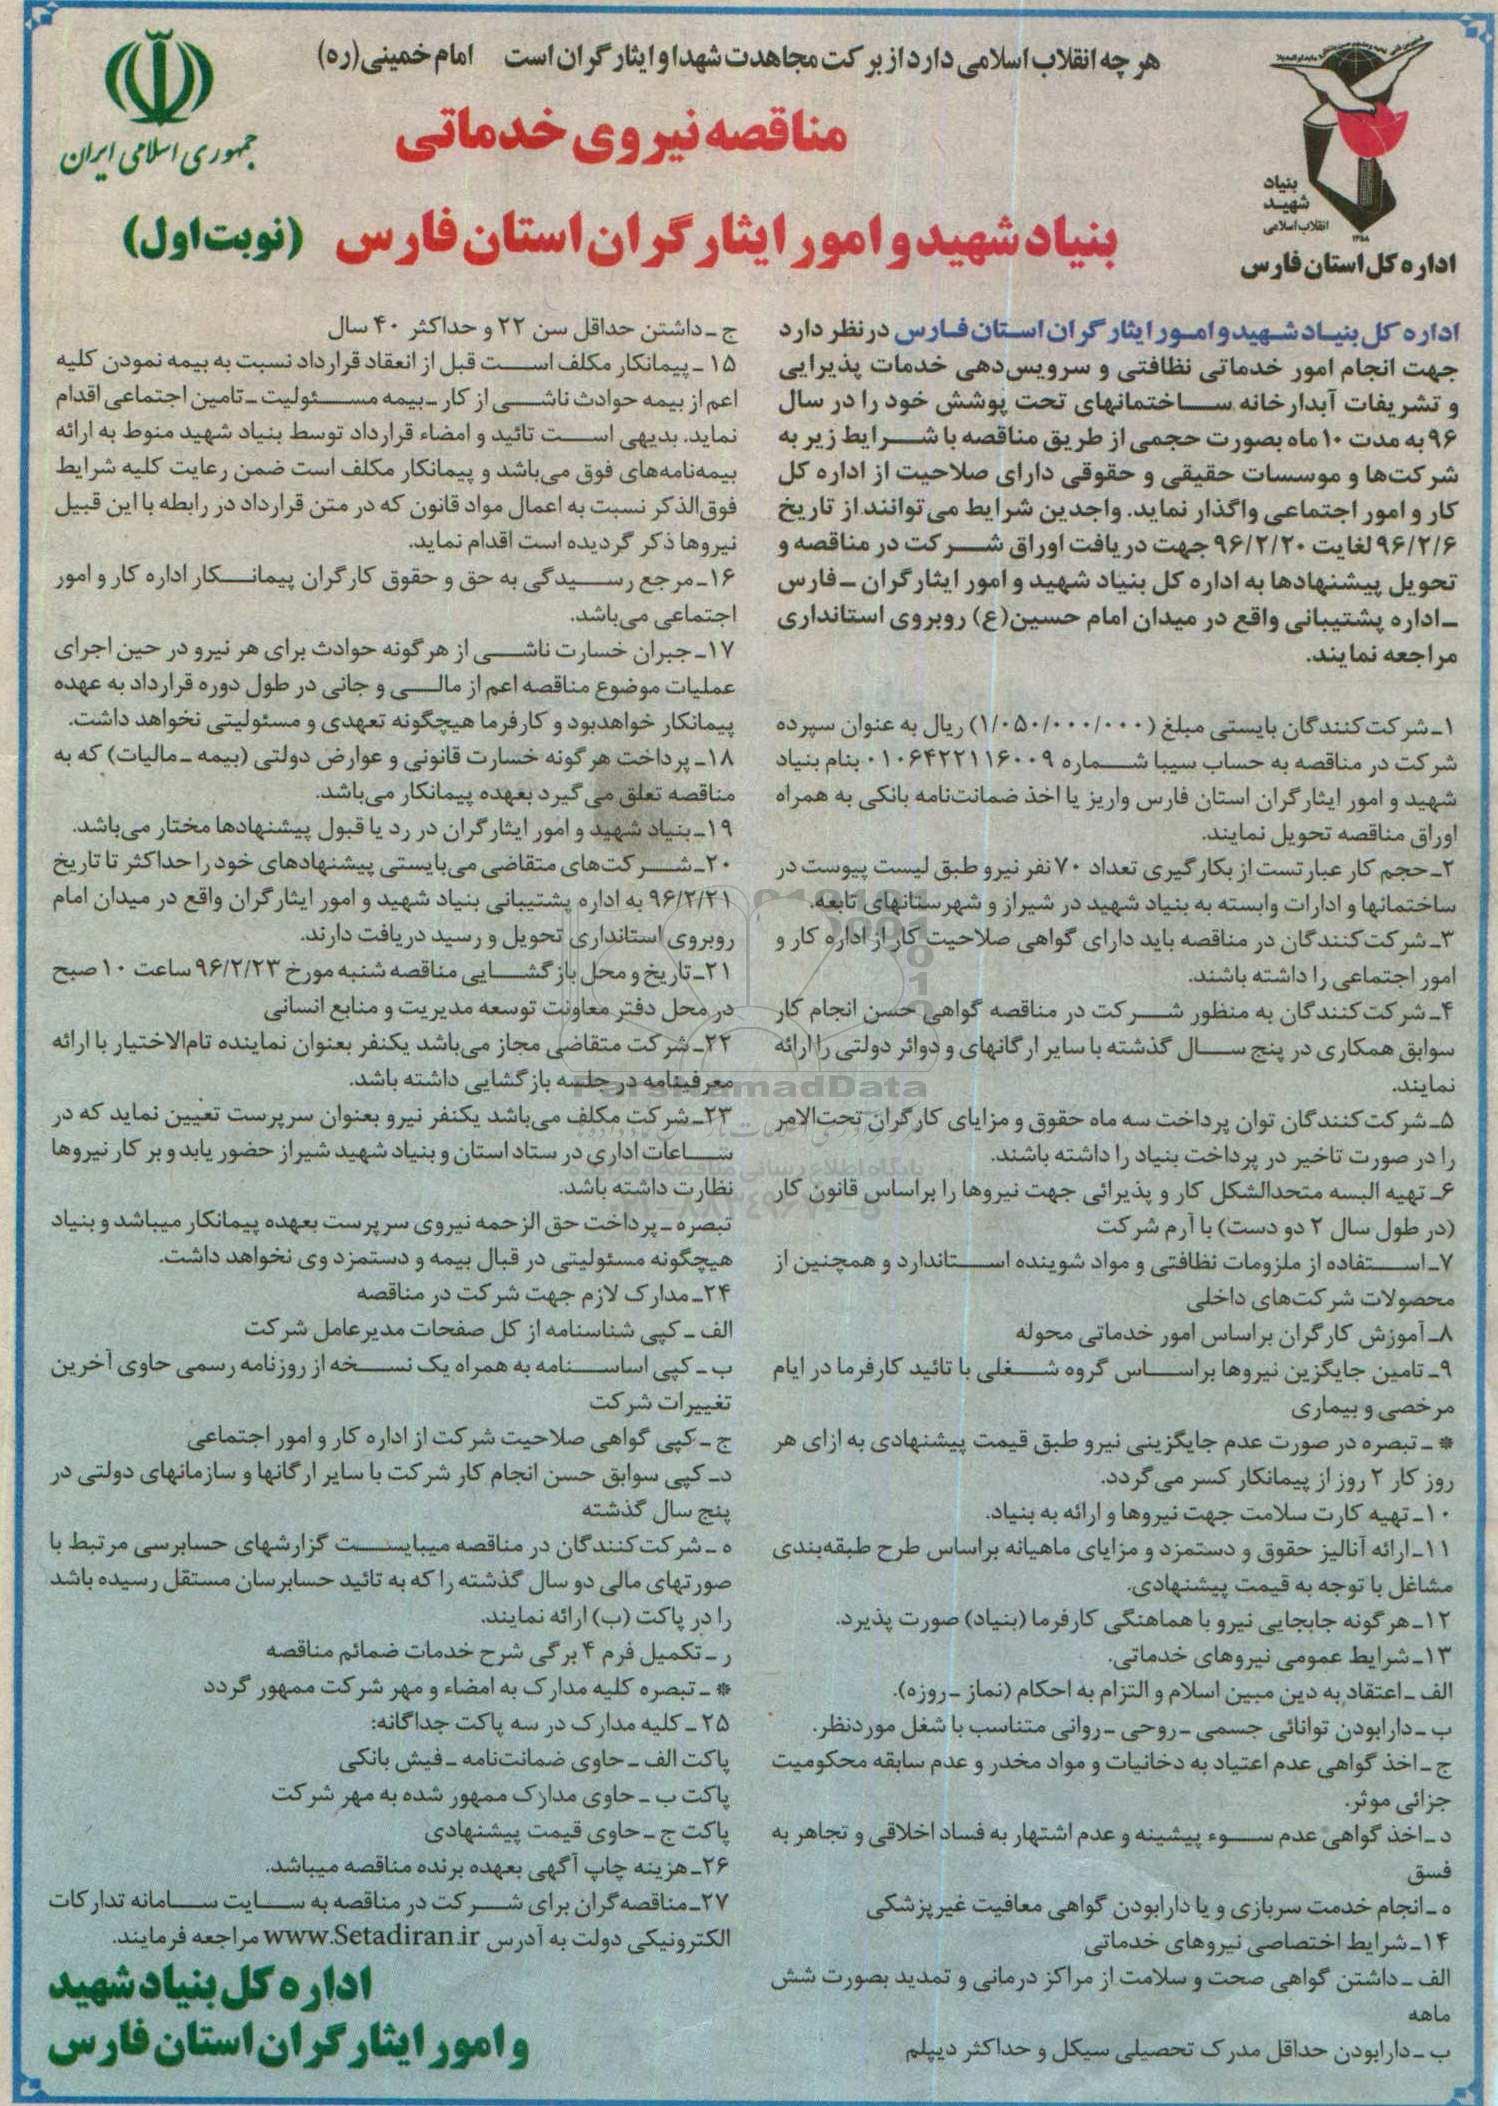 هر چه انقلاب اسلامی دارد از برکت مجاهدت شهدا و ایثارگران است امام خمینی (ره)
جمهوری اسلامی ایران
بنیاد
شهید
انقلاب اسلامی
۱۳۵۸
اداره کل استان فارس
مناقصه نیروی خدماتی
بنیاد شهید و امور ایثارگران استان فارس (نوبت اول)
اداره کل بنیاد شهید و امور ایثارگران استان فارس در نظر دارد
جهت انجام امور خدماتی نظافتی و سرویس‌دهی خدمات پذیرایی
و تشریفات آبدارخانه ساختمانهای تحت پوشش خود را در سال
۹۶ به مدت ۱۰ ماه بصورت حجمی از طریق مناقصه با شرایط زیر به
شرکت‌ها و موسسات حقیقی و حقوقی دارای صلاحیت از اداره کل
کار و امور اجتماعی واگذار نماید. واجدین شرایط می‌توانند از تاریخ
۹۶/۲/۶ لغایت ۹۶/۲/۲۰ جهت دریافت اوراق شرکت در مناقصه و
تحویل پیشنهادها به اداره کل بنیاد شهید و امور ایثارگران ـ فارس
ـ اداره پشتیبانی واقع در میدان امام حسین(ع) روبروی استانداری
مراجعه نمایند.
۱ـ شرکت‌کنندگان بایستی مبلغ (۱/۰۵۰/۰۰۰/۰۰۰) ریال به عنوان سپرده
شرکت در مناقصه به حساب سیبا شماره ۰۱۰۶۴۲۲۱۱۶۰۰۹ بنام بنیاد
شهید و امور ایثارگران استان فارس واریز یا اخذ ضمانت‌نامه بانکی به همراه
اوراق مناقصه تحویل نمایند.
۲ـ حجم کار عبارتست از بکارگیری تعداد ۷۰ نفر نیرو طبق لیست پیوست در
ساختمانها و ادارات وابسته به بنیاد شهید در شیراز و شهرستانهای تابعه.
۳ـ شرکت‌کنندگان در مناقصه باید دارای گواهی صلاحیت کار از اداره کار و
امور اجتماعی را داشته باشند.
۴ـ شرکت‌کنندگان به منظور شرکت در مناقصه گواهی حسن انجام کار
سوابق همکاری در پنج سال گذشته با سایر ارگانهای و دوائر دولتی را ارائه
نمایند.
۵ـ شرکت‌کنندگان توان پرداخت سه ماه حقوق و مزایای کارگران تحت‌الامر
را در صورت تاخیر در پرداخت بنیاد را داشته باشند.
۶ـ تهیه البسه متحدالشکل کار و پذیرائی جهت نیروها را براساس قانون کار
(در طول سال ۲ دو دست) با آرم شرکت
۷ـ استفاده از ملزومات نظافتی و مواد شوینده استاندارد و همچنین از
محصولات شرکت‌های داخلی
۸ـ آموزش کارگران براساس امور خدماتی محوله
۹ـ تامین جایگزین نیروها براساس گروه شغلی با تائید کارفرما در ایام
مرخصی و بیماری
* ـ تبصره در صورت عدم جایگزینی نیرو طبق قیمت پیشنهادی به ازای هر
روز کار ۲ روز از پیمانکار کسر می‌گردد.
۱۰ـ تهیه کارت سلامت جهت نیروها و ارائه به بنیاد.
۱۱ـ ارائه آنالیز حقوق و دستمزد و مزایای ماهیانه براساس طرح طبقه‌بندی
مشاغل با توجه به قیمت پیشنهادی.
۱۲ـ هرگونه جابجایی نیرو با هماهنگی کارفرما (بنیاد) صورت پذیرد.
۱۳ـ شرایط عمومی نیروهای خدماتی.
الف ـ اعتقاد به دین مبین اسلام و التزام به احکام (نماز ـ روزه).
ب ـ دارابودن توانائی جسمی ـ روحی ـ روانی متناسب با شغل موردنظر.
ج ـ اخذ گواهی عدم اعتیاد به دخانیات و مواد مخدر و عدم سابقه محکومیت
جزائی موثر.
د ـ اخذ گواهی عدم سوء پیشینه و عدم اشتهار به فساد اخلاقی و تجاهر به
فسق
ه ـ انجام خدمت سربازی و یا دارابودن گواهی معافیت غیرپزشکی
۱۴ـ شرایط اختصاصی نیروهای خدماتی
الف ـ داشتن گواهی صحت و سلامت از مراکز درمانی و تمدید بصورت شش
ماهه
ب ـ دارابودن حداقل مدرک تحصیلی سیکل و حداکثر دیپلم
ج ـ داشتن حداقل سن ۲۲ و حداکثر ۴۰ سال
۱۵ ـ پیمانکار مکلف است قبل از انعقاد قرارداد نسبت به بیمه نمودن کلیه
اعم از بیمه حوادث ناشی از کار ـ بیمه مسئولیت ـ تامین اجتماعی اقدام
نماید. بدیهی است تائید و امضاء قرارداد توسط بنیاد شهید منوط به ارائه
بیمه‌نامه‌های فوق می‌باشد و پیمانکار مکلف است ضمن رعایت کلیه شرایط
فوق‌الذکر نسبت به اعمال مواد قانون که در متن قرارداد در رابطه با این قبیل
نیروها ذکر گردیده است اقدام نماید.
۱۶ـ مرجع رسیدگی به حق و حقوق کارگران پیمانکار اداره کار و امور
اجتماعی می‌باشد.
۱۷ـ جبران خسارت ناشی از هرگونه حوادث برای هر نیرو در حین اجرای
عملیات موضوع مناقصه اعم از مالی و جانی در طول دوره قرارداد به عهده
پیمانکار خواهدبود و کارفرما هیچگونه تعهدی و مسئولیتی نخواهد داشت.
۱۸ـ پرداخت هرگونه خسارت قانونی و عوارض دولتی (بیمه ـ مالیات) که به
مناقصه تعلق می‌گیرد بعهده پیمانکار می‌باشد.
۱۹ـ بنیاد شهید و امور ایثارگران در رد یا قبول پیشنهادها مختار می‌باشد.
۲۰ـ شرکت‌های متقاضی می‌بایستی پیشنهادهای خود را حداکثر تا تاریخ
۹۶/۲/۲۱ به اداره پشتیبانی بنیاد شهید و امور ایثارگران واقع در میدان امام
روبروی استانداری تحویل و رسید دریافت دارند.
۲۱ـ تاریخ و محل بازگشایی مناقصه شنبه مورخ ۹۶/۲/۲۳ ساعت ۱۰ صبح
در محل دفتر معاونت توسعه مدیریت و منابع انسانی
۲۲ـ شرکت متقاضی مجاز می‌باشد یکنفر بعنوان نماینده تام‌الاختیار با ارائه
معرفینامه در جلسه بازگشایی داشته باشد.
۲۳ـ شرکت مکلف می‌باشد یکنفر نیرو بعنوان سرپرست تعیین نماید که در
ساعات اداری در ستاد استان و بنیاد شهید شیراز حضور یابد و بر کار نیروها
نظارت داشته باشد.
تبصره ـ پرداخت حق الزحمه نیروی سرپرست بعهده پیمانکار میباشد و بنیاد
هیچگونه مسئولیتی در قبال بیمه و دستمزد وی نخواهد داشت.
۲۴ـ مدارک لازم جهت شرکت در مناقصه
الف ـ کپی شناسنامه از کل صفحات مدیرعامل شرکت
ب ـ کپی اساسنامه به همراه یک نسخه از روزنامه رسمی حاوی آخرین
تغییرات شرکت
ج ـ کپی گواهی صلاحیت شرکت از اداره کار و امور اجتماعی
د ـ کپی سوابق حسن انجام کار شرکت با سایر ارگانها و سازمانهای دولتی در
پنج سال گذشته
ه ـ شرکت‌کنندگان در مناقصه میبایست گزارشهای حسابرسی مرتبط با
صورتهای مالی دو سال گذشته را که به تائید حسابرسان مستقل رسیده باشد
را در پاکت (ب) ارائه نمایند.
ر ـ تکمیل فرم ۴ برگی شرح خدمات ضمائم مناقصه
* ـ تبصره کلیه مدارک به امضاء و مهر شرکت ممهور گردد
۲۵ ـ کلیه مدارک در سه پاکت جداگانه:
پاکت الف ـ حاوی ضمانت‌نامه ـ فیش بانکی
پاکت ب ـ حاوی مدارک ممهور شده به مهر شرکت
پاکت ج ـ حاوی قیمت پیشنهادی
۲۶ـ هزینه چاپ آگهی بعهده برنده مناقصه میباشد.
۲۷ـ مناقصه‌گران برای شرکت در مناقصه به سایت سامانه تدارکات
الکترونیکی دولت به آدرس www.Setadiran.ir مراجعه فرمایند.
اداره کل بنیاد شهید
و امور ایثارگران استان فارس
ParsNamadData